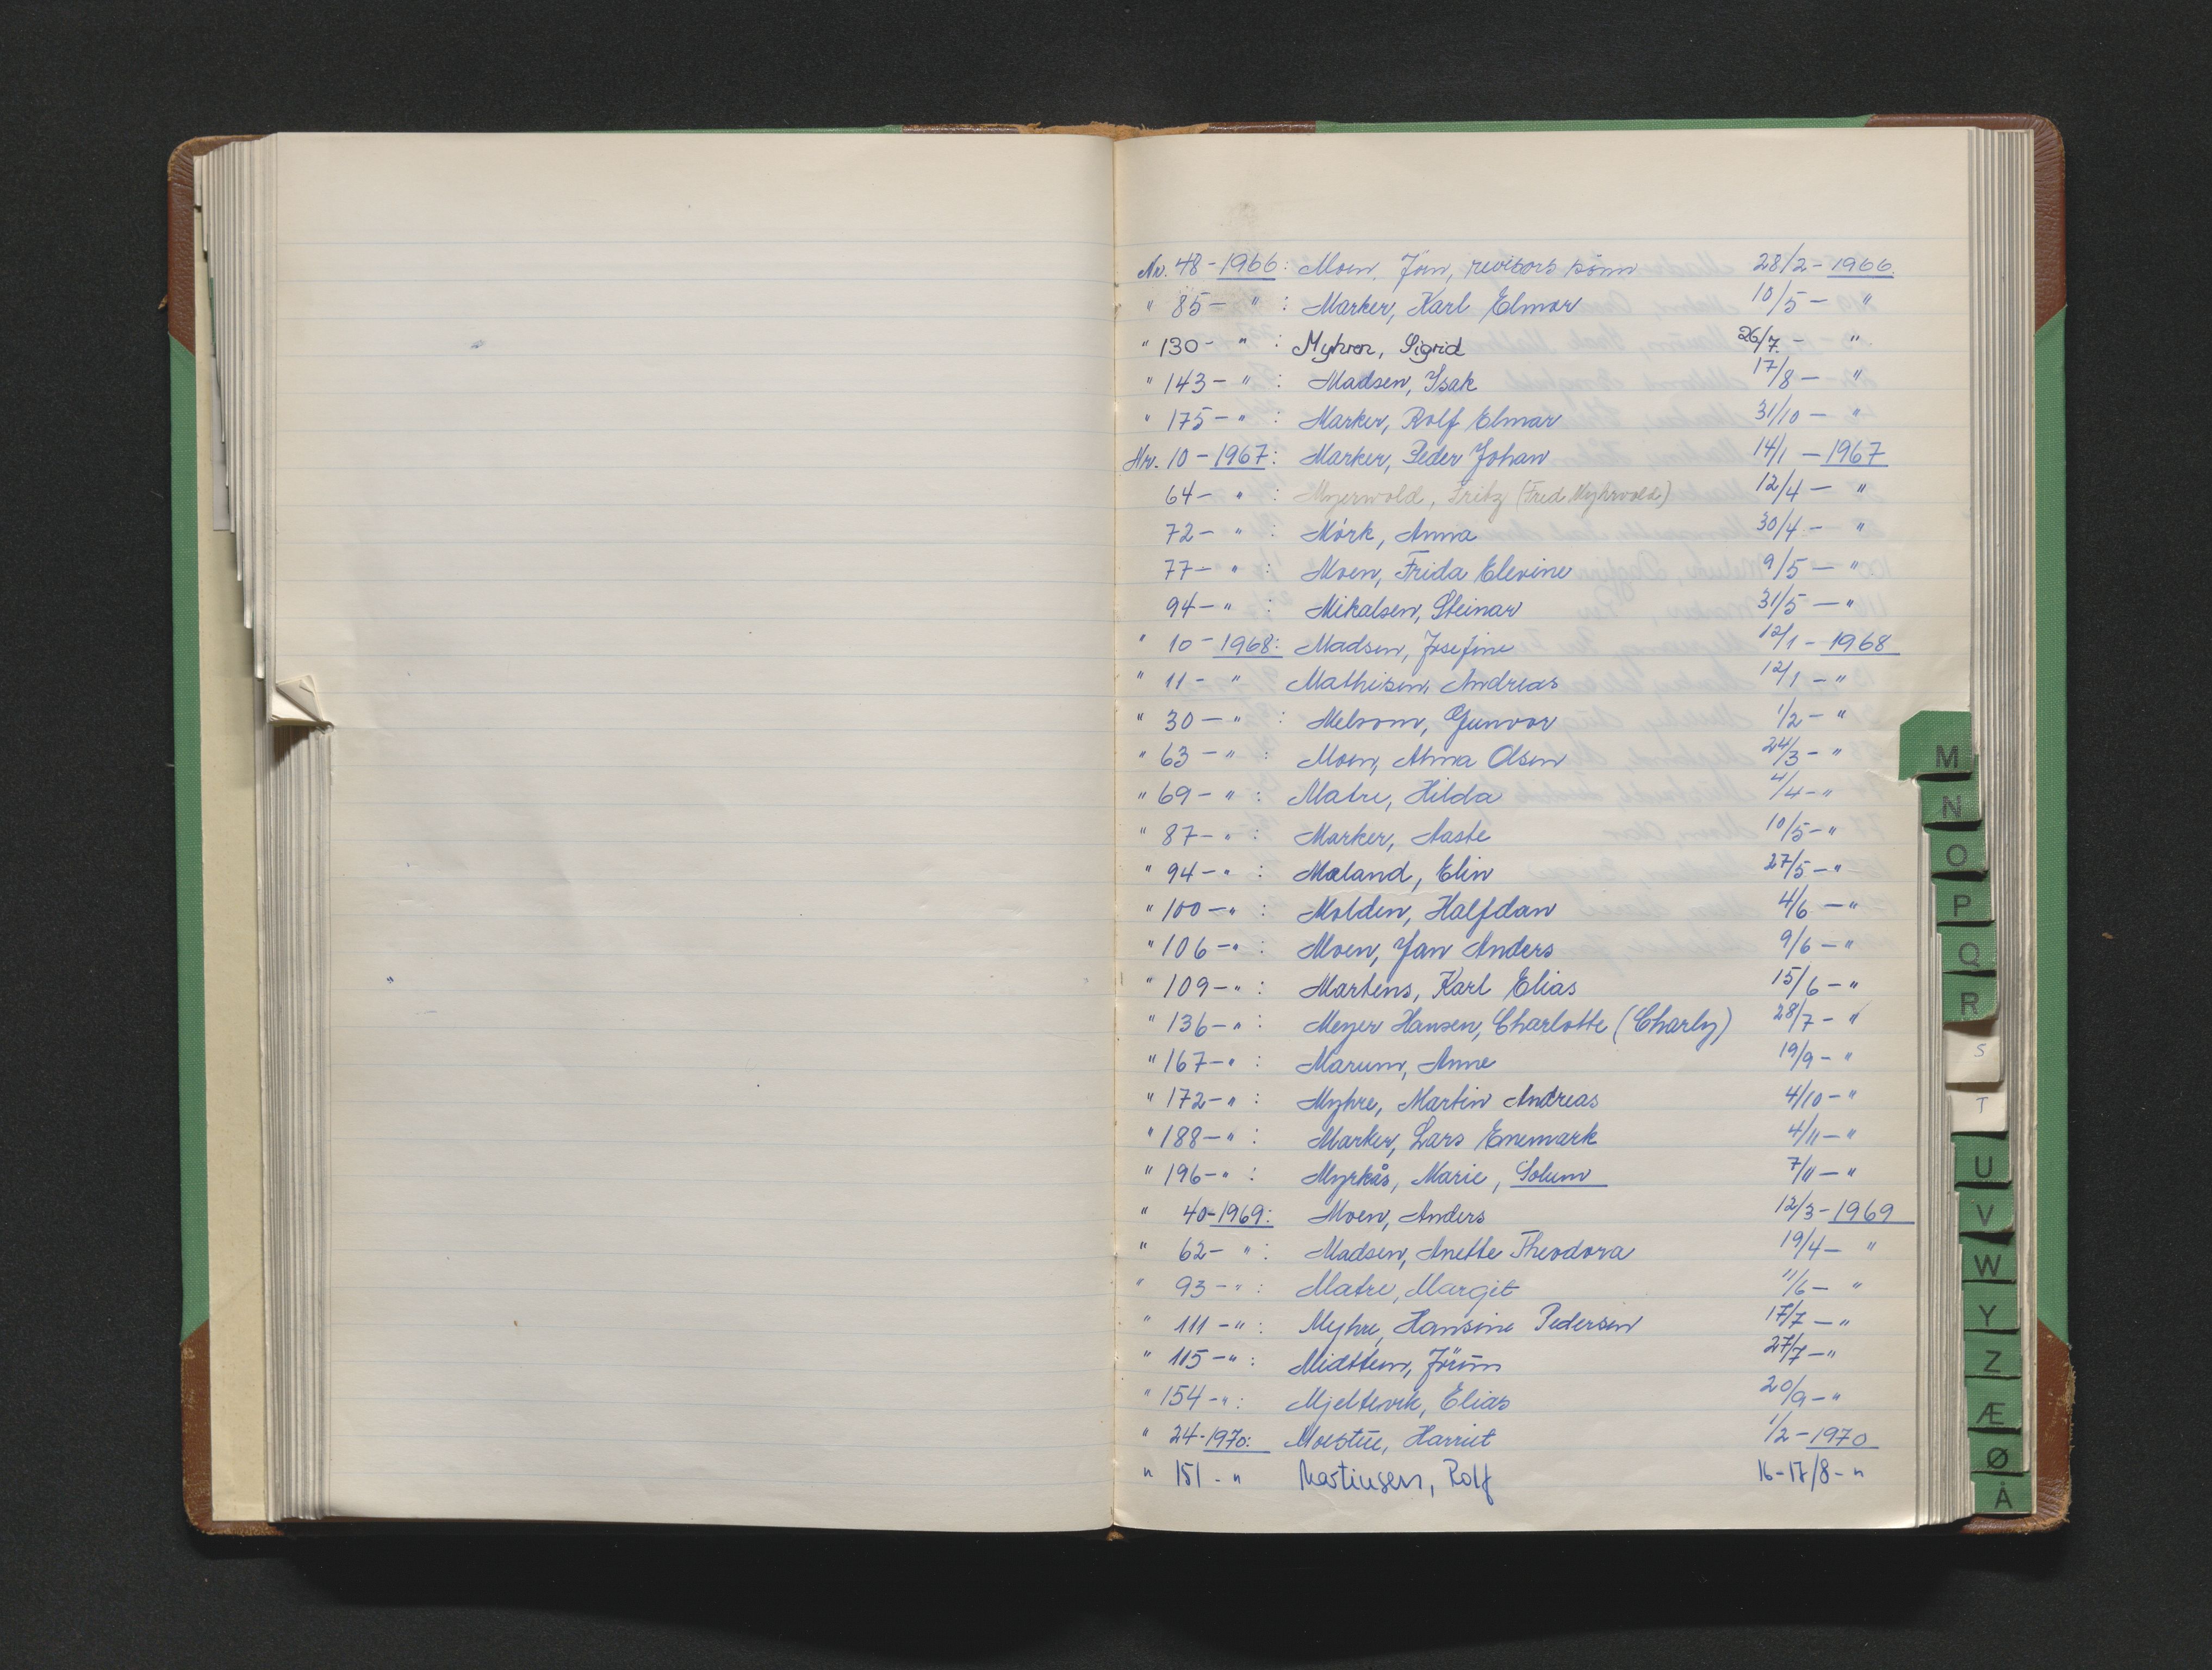 Nr. 48 - 1966: Moen, Jon, revisors sönn 28/2 - 1966.
" 85 - " : Marker, Karl Elmar 10/5 - "
" 130 - " : Myhren, Sigrid 26/7. - "
" 143 - " : Madsen, Isak 17/8 - "
" 175 - " : Marker, Rolf Elmar 31/10 - "
Nr. 10 - 1967: Marker, Peder Johan 14/1 - 1967
64 - " : Myerwold, Fritz (Fred Myhrvold) 12/4 - "
72 - " : Mörk, Anna 30/4 - "
77 - " : Moen, Frida Elevine 9/5 - "
94 - " : Mikalsen, Steinar 31/5 - "
" 10 - 1968: Madsen, Josefine 12/1 - 1968
" 11 - " Mathisen, Andreas 12/1 - "
" 30 - " : Melsom, Gunvor 1/2 - "
" 63 - " : Moen, Alma Olsen 24/3 - "
" 69 - " : Matre, Hilda 4/4 - "
" 87 - " : Marker, Aaste 10/5 - "
" 94 - " : Mæland, Elin 27/5 - "
" 100 - " : Molden, Halfdan 4/6 - "
" 106 - " : Moen, Jan Anders 9/6 - "
" 109 - " : Martens, Karl Elias 15/6 - "
" 136 - " : Meyer Hansen, Charlotte (Charly) 28/7 - "
" 167 - " : Marum, Anne 19/9 - "
" 172 - " : Myhre, Martin Andreas 4/10 - "
" 188 - " : Marker, Lars Enemark 4/11 - "
" 196 - " : Myrkås, Marie, Solum 7/11 - "
" 40 - 1969: Moen, Anders 12/3 - 1969
" 62 - " : Madsen, Anette Theodora 19/4 - "
" 93 - " : Matre, Margit 11/6 - "
" 111 - " : Myhre, Hansine Pedersen 17/7 - "
" 115 - " : Midttun, Jörun 27/7 - "
" 154 - " : Mjeltevik, Elias 20/9 - "
" 24 - 1970: Moestue, Harriet 1/2 - 1970
" 151 - " Martinsen, Rolf 16-17/8 - "
M
N
O
P
Q
R
S
T
U
V
W
Y
Z
Æ
Ø
Å